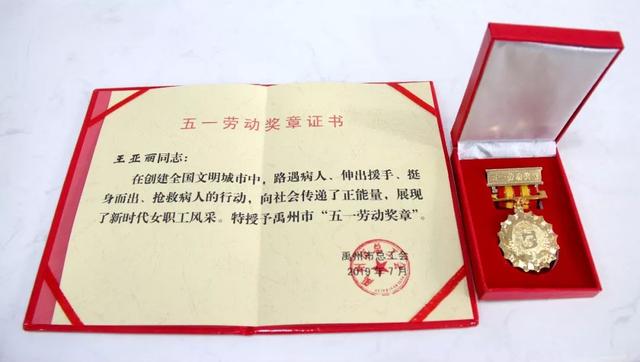 五一劳动奖章证书
王亚丽同志：
在创建全国文明城市中，路遇病人、伸出援手、挺
身而出、抢救病人的行动，向社会传递了正能量，展现
了新时代女职工风采。特授予禹州市“五一劳动奖章”。
禹州市总工会
2019年7月
五一劳动奖章